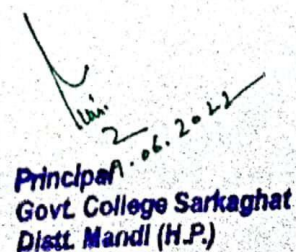 .06.2022
Principal
Govt. College Sarkaghat
Distt. Mandi (H.P.)